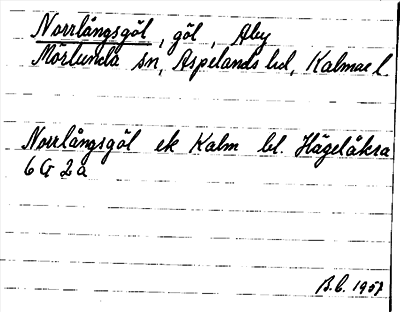 Norrlångsgöl, göl, Aby
Mörlunda sn, Aspelands hd, Kalmar l.
Norrlångsgöl ek Kalm bl. Hägelåkra
6 G 2 a
B.C. 1957